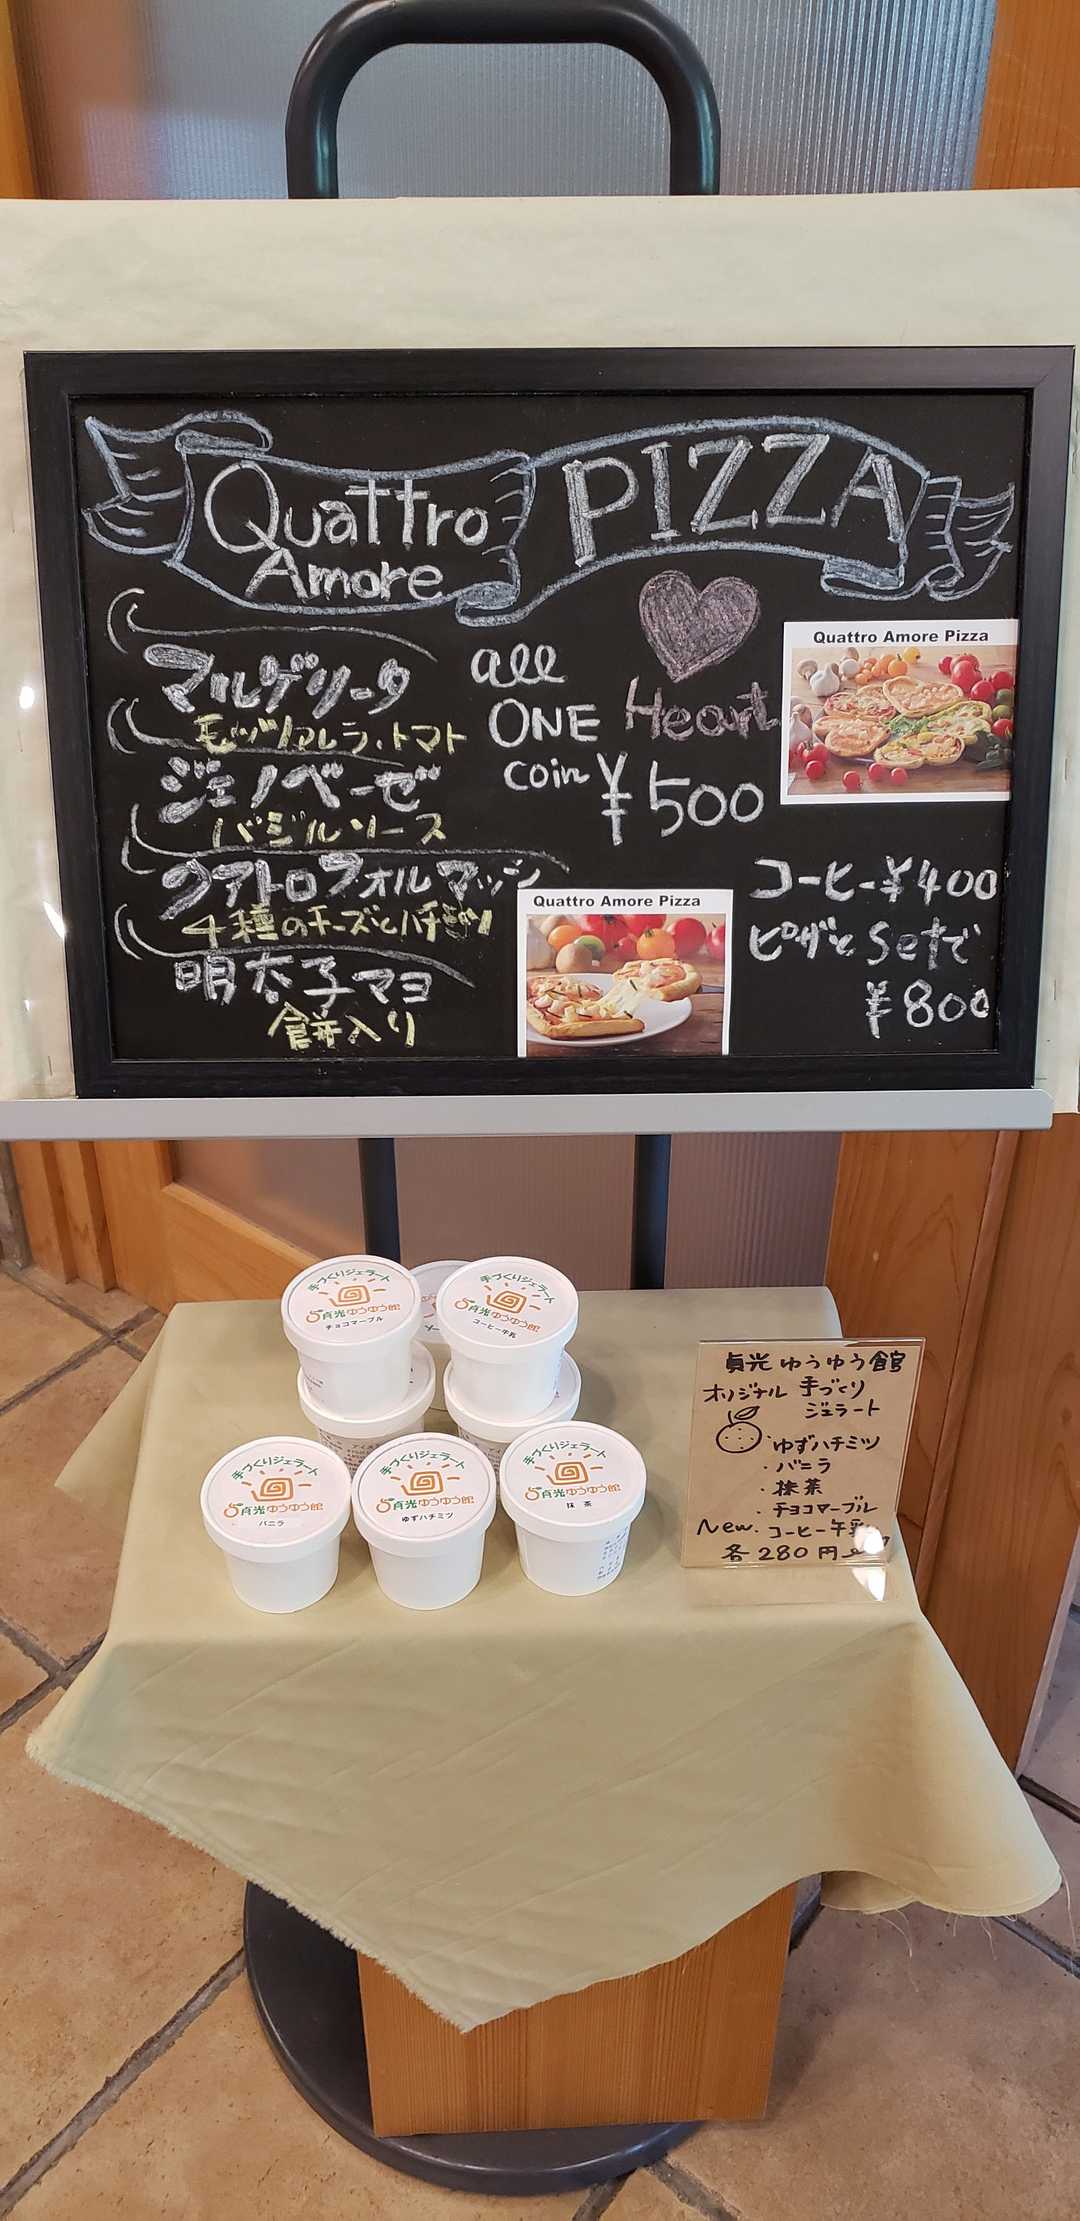 Quattro
Amore
PIZZA
マルゲリータ
モッツァレラ・トマト
ジェノベーゼ
バジルソース
クアトロフォルマッジ
4種のチーズとハチミツ
明太子マヨ
餅入り
all
ONE
coin
¥500
Heart
Quattro Amore Pizza
Quattro Amore Pizza
コーヒー¥400
ピザとsetで
¥800
手づくりジェラート
貞光ゆうゆう館
チョコマーブル
手づくりジェラート
貞光ゆうゆう館
コーヒー牛乳
手づくりジェラート
貞光ゆうゆう館
バニラ
手づくりジェラート
貞光ゆうゆう館
ゆずハチミツ
手づくりジェラート
貞光ゆうゆう館
抹茶
貞光ゆうゆう館
オリジナル 手づくり
ジェラート
・ゆずハチミツ
・バニラ
・抹茶
・チョコマーブル
New・コーヒー牛乳
各280円